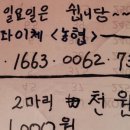 일요일은 쉽니당~~
다이체 <농협>
.1663.0062.73
2마리 천원
1000원